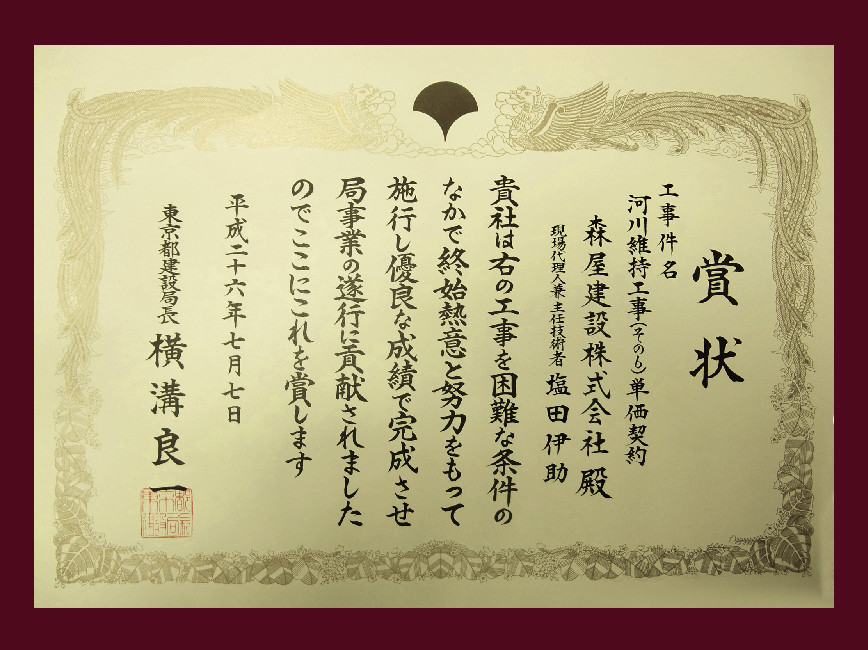 賞状
工事件名
河川維持工事(その6)単価契約
森屋建設株式会社殿
現場代理人兼主任技術者 塩田伊助
貴社は右の工事を困難な条件の
なかで終始熱意と努力をもって
施行し優良な成績で完成させ
局事業の遂行に貢献されました
のでここにこれを賞します
平成二十六年七月七日
東京都建設局長 横溝良一